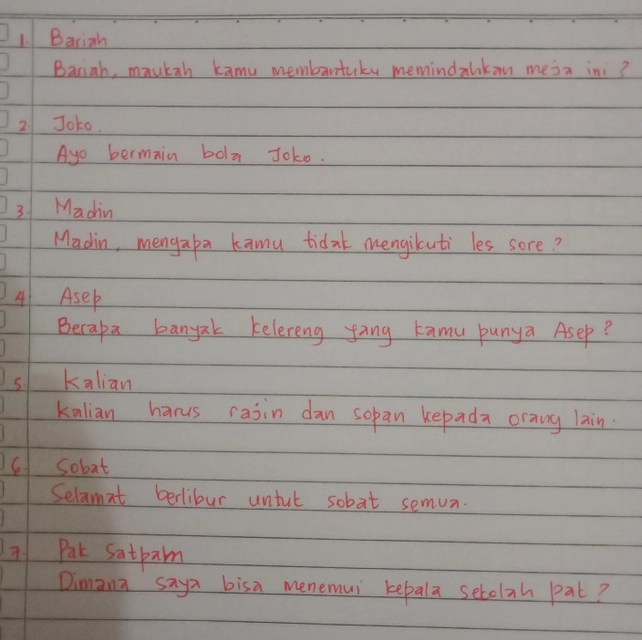 1. Bariah
Bariah, maukah kamu membantuku memindahkan meja ini?
2. Joko.
Ayo bermain bola Joko.
3. Madin
Madin, mengapa kamu tidak mengikuti les sore?
4. Asep
Berapa banyak kelereng yang kamu punya Asep?
5. Kalian
Kalian harus rajin dan sopan kepada orang lain.
6. Sobat
Selamat berlibur untuk sobat semua.
7. Pak Satpam
Dimana saya bisa menemui kepala sekolah pak?